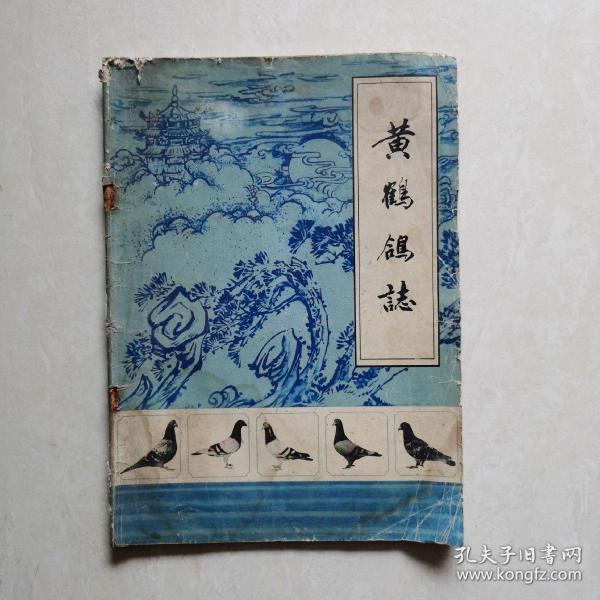 黄鶴鴿誌
孔夫子旧書网
www.kongfz.com